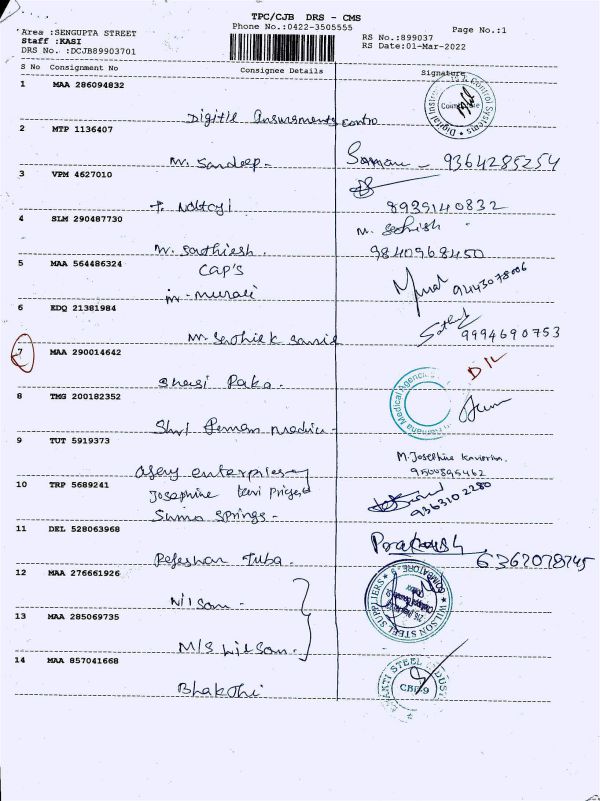 TPC/CJB DRS - CMS
Phone No.:0422-3505555
Page No.:1
Area :SENGUPTA STREET
Staff :KASI
DRS No. :DCJB89903701
RS No.:899037
RS Date:01-Mar-2022
S No Consignment No Consignee Details Signature
1 MAA 286094832
Digitle
2 MTP 1136407
Mr. Sandeep - 9364285254
3 VPM 4627010
8939140832
4 SLM 290487730
M. Sathish
Mr. Sathiesh. 9840968450
5 MAA 564486324
CAP'S
Mr. Murali 9443078006
6 EDQ 21381984
9994690753
7 MAA 290014642
D/L
8 TMG 200182352
Medical Agencies
9 TUT 5919373
M. Josephine
9500895462
enterprises
10 TRP 5689241
Josephine
9363102280
Suma Springs -
11 DEL 528063968
Prakash
6362078745
12 MAA 276661926
Wilson -
WILSON STEEL SUPPLIERS
COIMBATORE
13 MAA 285069735
M/S Wilson -
14 MAA 857041668
Bhakthi
SHAKTI STEEL INDUST
CBE-9